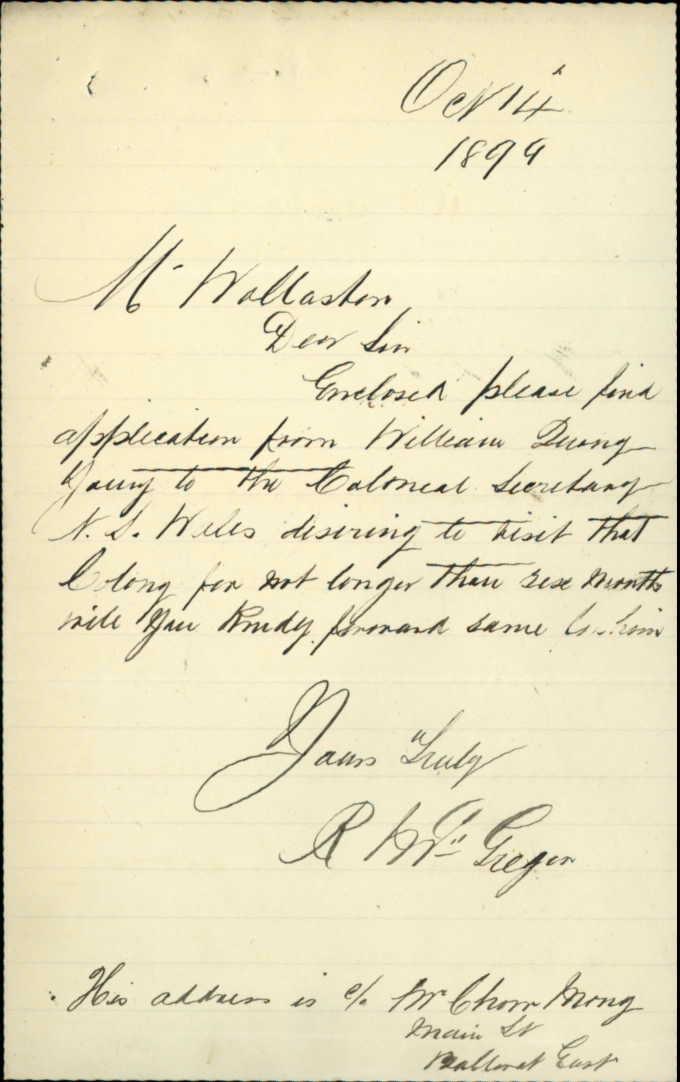 Oct 14
1899
Mr Wollaston
Dear Sir
Enclosed please find
application from William Quong
Young to the Colonial Secretary
N. S. Wales desiring to visit that
Colony for not longer than six months
will you kindly forward same to him
Yours truly
R McGregor
His address is c/o Mr Chow Mong
Main St
Ballarat East